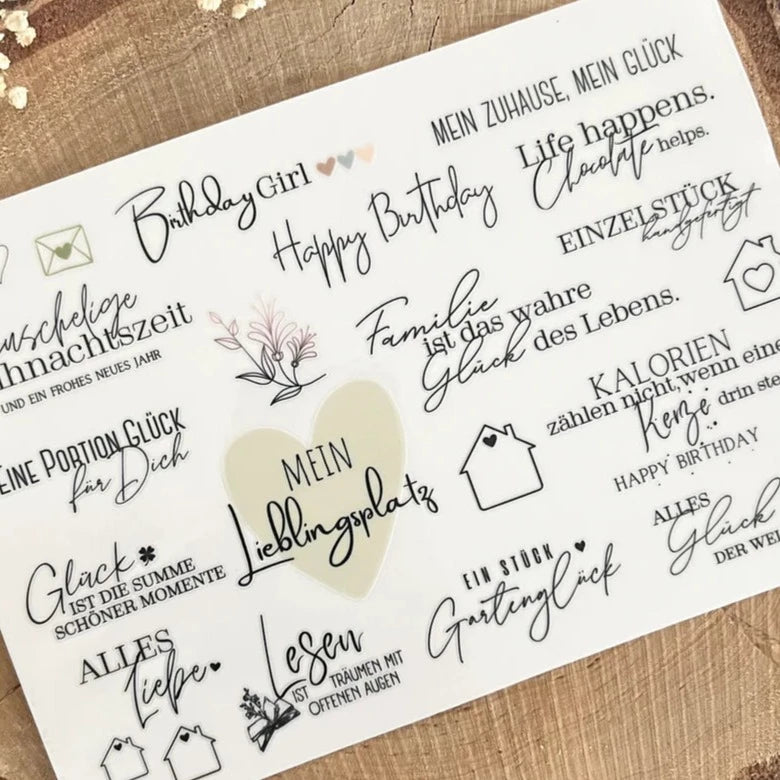 MEIN ZUHAUSE, MEIN GLÜCK
Life happens.
Chocolate helps.
Birthday Girl
Happy Birthday
EINZELSTÜCK
handgefertigt
uschelige
ihnachtszeit
UND EIN FROHES NEUES JAHR
Familie
ist das wahre
Glück des Lebens.
KALORIEN
zählen nicht, wenn eine
Kerze drin ste
HAPPY BIRTHDAY
EINE PORTION GLÜCK
für Dich
MEIN
Lieblingsplatz
ALLES
Glück
DER WEL
Glück
IST DIE SUMME
SCHÖNER MOMENTE
EIN STÜCK
Gartenglück
ALLES
Liebe
Lesen
IST TRÄUMEN MIT
OFFENEN AUGEN